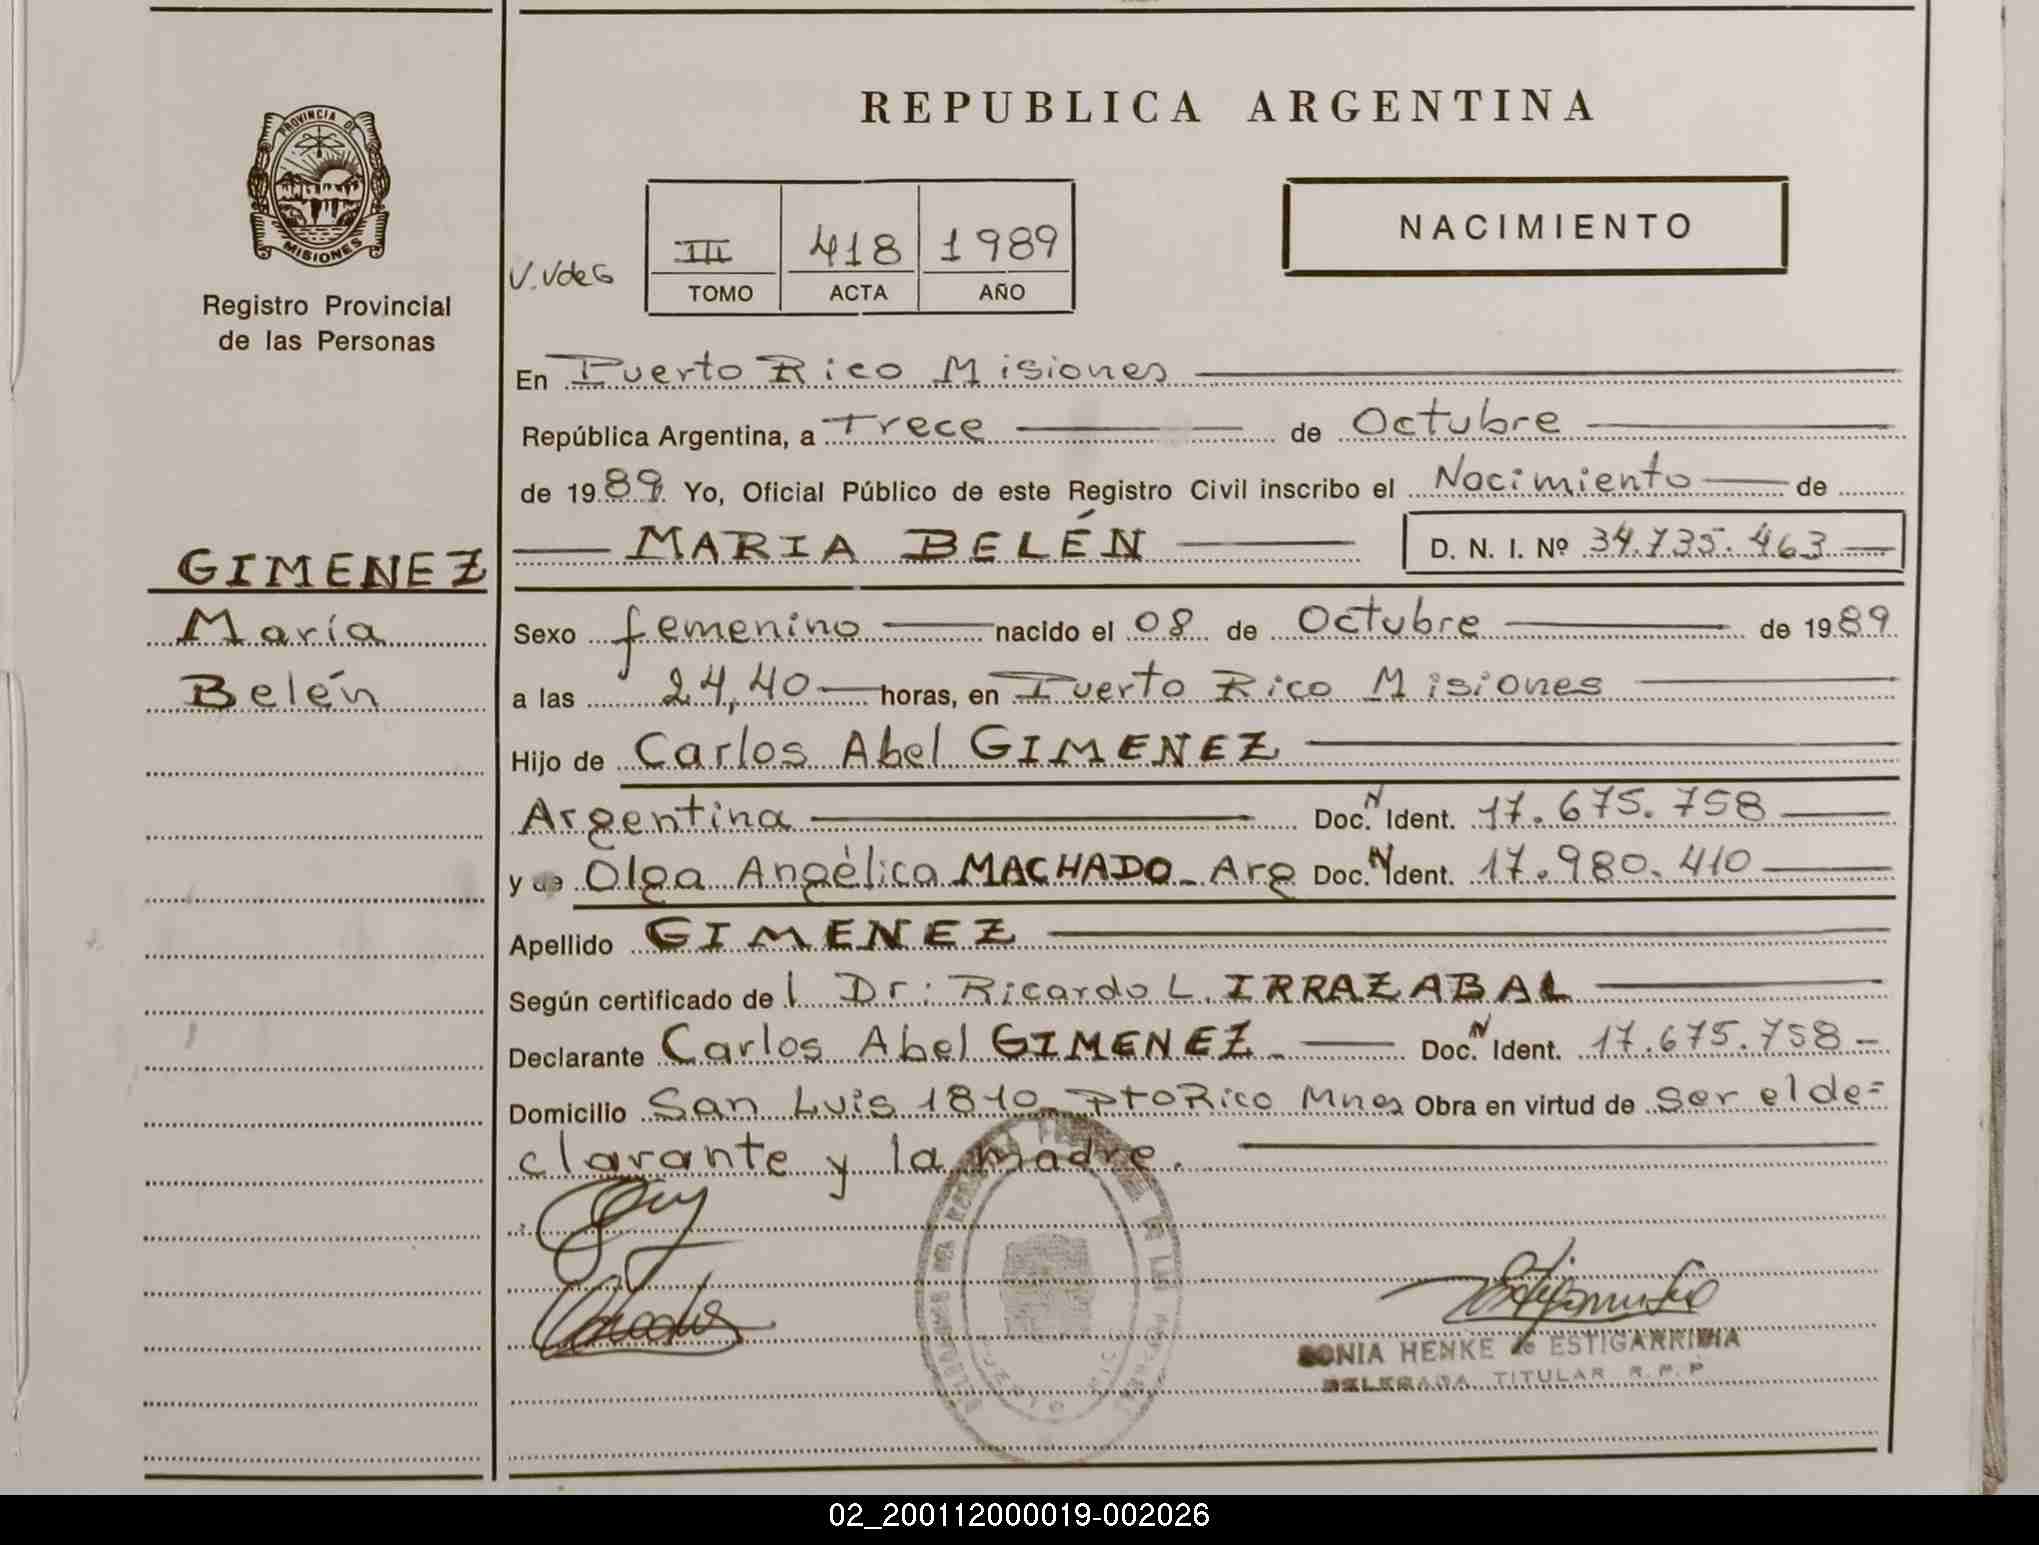 PROVINCIA DE
MISIONES
Registro Provincial
de las Personas
GIMENEZ
María
Belén
REPUBLICA ARGENTINA
NACIMIENTO
V.VdeG
III 418 1989
TOMO ACTA AÑO
En Puerto Rico Misiones
República Argentina, a Trece de Octubre
de 1989. Yo, Oficial Público de este Registro Civil inscribo el Nacimiento de
MARIA BELÉN D. N. I. Nº 34.735.463
Sexo femenino nacido el 08 de Octubre de 1989
a las 24,40 horas, en Puerto Rico Misiones
Hijo de Carlos Abel GIMENEZ
Argentina Doc. N Ident. 17.675.758
y de Olga Angélica MACHADO - Arg Doc. N Ident. 17.980.410
Apellido GIMENEZ
Según certificado de l Dr: Ricardo L. IRRAZABAL
Declarante Carlos Abel GIMENEZ - Doc. N Ident. 17.675.758 -
Domicilio San Luis 1810 PtoRico Mnes Obra en virtud de ser el de=
clarante y la madre.
SONIA HENKE de ESTIGARRIBIA
DELEGADA TITULAR R.P.P
PUERTO RICO
02_200112000019-002026